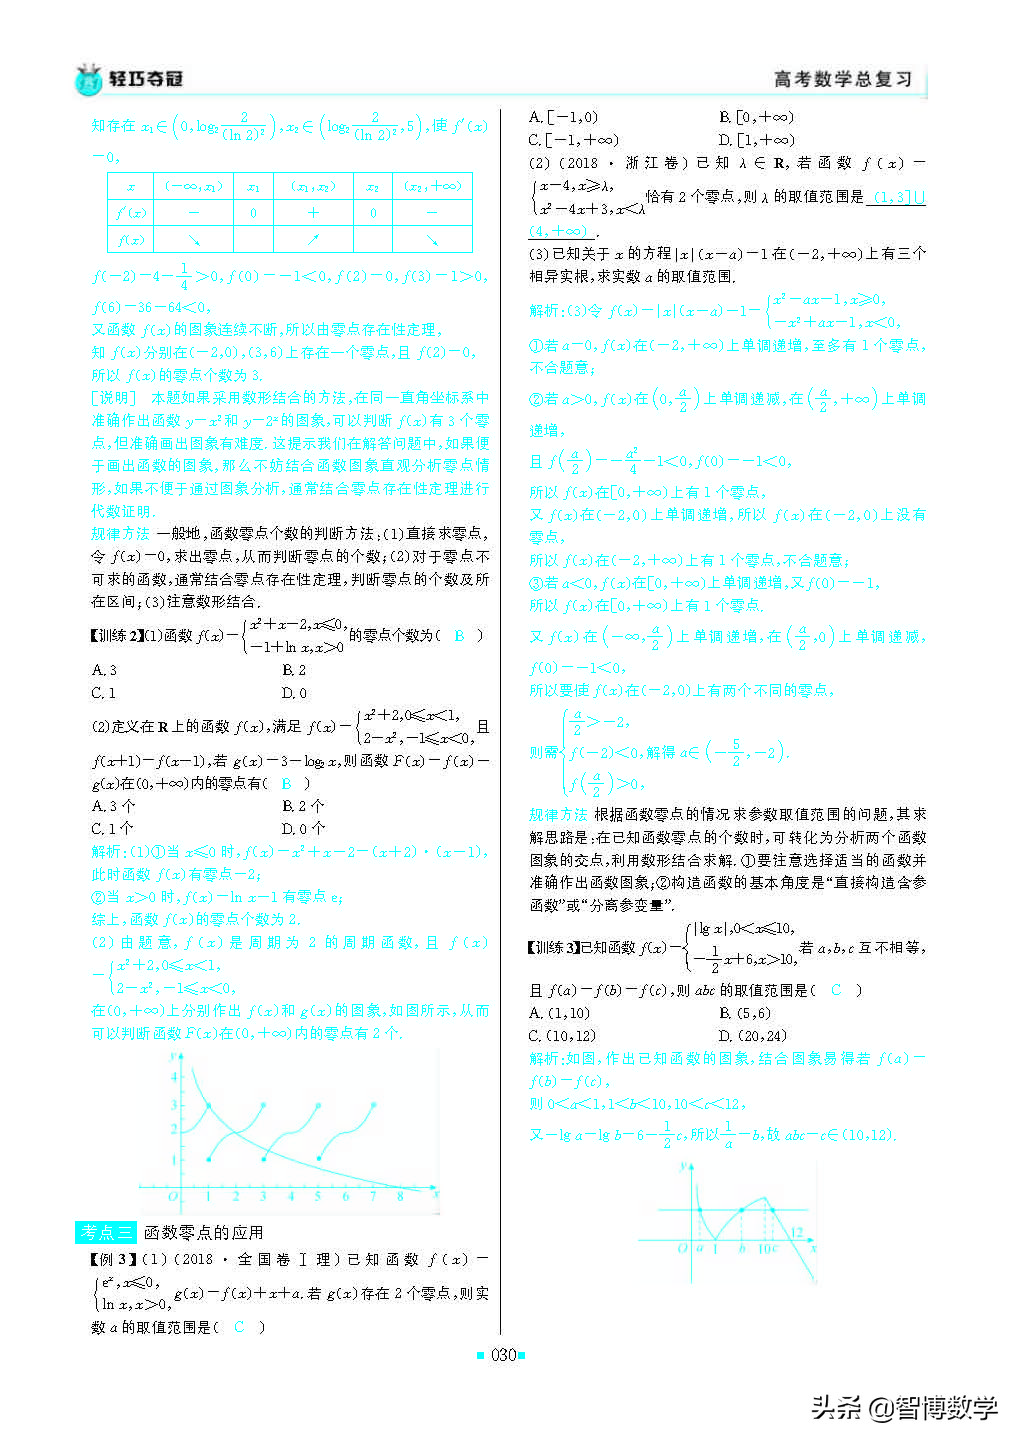 轻巧夺冠
高考数学总复习
知存在 x₁∈(0,log₂ 2/(ln 2)²),x₂∈(log₂ 2/(ln 2)²,5),使 f′(x)
=0,
x (-∞,x₁) x₁ (x₁,x₂) x₂ (x₂,+∞)
f′(x) - 0 + 0 -
f(x) ↘ ↗ ↘
f(-2)=4-1/4>0,f(0)=-1<0,f(2)=0,f(3)=1>0,
f(6)=36-64<0,
又函数 f(x)的图象连续不断,所以由零点存在性定理,
知 f(x)分别在(-2,0),(3,6)上存在一个零点,且 f(2)=0,
所以 f(x)的零点个数为 3.
[说明] 本题如果采用数形结合的方法,在同一直角坐标系中
准确作出函数 y=x²和 y=2ˣ的图象,可以判断 f(x)有 3 个零
点,但准确画出图象有难度.这提示我们在解答问题中,如果便
于画出函数的图象,那么不妨结合函数图象直观分析零点情
形,如果不便于通过图象分析,通常结合零点存在性定理进行
代数证明.
规律方法 一般地,函数零点个数的判断方法:(1)直接求零点,
令 f(x)=0,求出零点,从而判断零点的个数;(2)对于零点不
可求的函数,通常结合零点存在性定理,判断零点的个数及所
在区间;(3)注意数形结合.
【训练2】(1)函数 f(x)={x²+x-2,x≤0, -1+ln x,x>0 的零点个数为( B )
A. 3 B. 2
C. 1 D. 0
(2)定义在 R 上的函数 f(x),满足 f(x)={x²+2,0≤x<1, 2-x²,-1≤x<0, 且
f(x+1)=f(x-1),若 g(x)=3-log₂x,则函数 F(x)=f(x)-
g(x)在(0,+∞)内的零点有( B )
A. 3 个 B. 2 个
C. 1 个 D. 0 个
解析:(1)①当 x≤0 时,f(x)=x²+x-2=(x+2)·(x-1),
此时函数 f(x)有零点-2;
②当 x>0 时,f(x)=ln x-1 有零点 e;
综上,函数 f(x)的零点个数为 2.
(2)由题意,f(x)是周期为 2 的周期函数,且 f(x)
={x²+2,0≤x<1, 2-x²,-1≤x<0,
在(0,+∞)上分别作出 f(x)和 g(x)的图象,如图所示,从而
可以判断函数 F(x)在(0,+∞)内的零点有 2 个.
y
4
3
2
1
O 1 2 3 4 5 6 7 8 x
考点三 函数零点的应用
【例 3】(1)(2018·全国卷Ⅰ理)已知函数 f(x)=
{eˣ,x≤0, ln x,x>0, g(x)=f(x)+x+a.若 g(x)存在 2 个零点,则实
数 a 的取值范围是( C )
A. [-1,0) B. [0,+∞)
C. [-1,+∞) D. [1,+∞)
(2)(2018·浙江卷)已知 λ∈R,若函数 f(x)=
{x-4,x≥λ, x²-4x+3,x<λ 恰有 2 个零点,则 λ 的取值范围是 (1,3]∪
(4,+∞) .
(3)已知关于 x 的方程|x|(x-a)=1 在(-2,+∞)上有三个
相异实根,求实数 a 的取值范围.
解析:(3)令 f(x)=|x|(x-a)-1={x²-ax-1,x≥0, -x²+ax-1,x<0,
①若 a=0,f(x)在(-2,+∞)上单调递增,至多有 1 个零点,
不合题意;
②若 a>0,f(x)在(0,a/2)上单调递减,在(a/2,+∞)上单调
递增,
且 f(a/2)=-a²/4-1<0,f(0)=-1<0,
所以 f(x)在[0,+∞)上有 1 个零点,
又 f(x)在(-2,0)上单调递增,所以 f(x)在(-2,0)上没有
零点,
所以 f(x)在(-2,+∞)上有 1 个零点,不合题意;
③若 a<0,f(x)在[0,+∞)上单调递增,又 f(0)=-1,
所以 f(x)在[0,+∞)上有 1 个零点.
又 f(x)在(-∞,a/2)上单调递增,在(a/2,0)上单调递减,
f(0)=-1<0,
所以要使 f(x)在(-2,0)上有两个不同的零点,
则需{a/2>-2, f(-2)<0, f(a/2)>0, 解得 a∈(-5/2,-2).
规律方法 根据函数零点的情况求参数取值范围的问题,其求
解思路是:在已知函数零点的个数时,可转化为分析两个函数
图象的交点,利用数形结合求解.①要注意选择适当的函数并
准确作出函数图象;②构造函数的基本角度是“直接构造含参
函数”或“分离参变量”.
【训练3】已知函数 f(x)={|lg x|,0<x≤10, -1/2x+6,x>10, 若 a,b,c 互不相等,
且 f(a)=f(b)=f(c),则 abc 的取值范围是( C )
A. (1,10) B. (5,6)
C. (10,12) D. (20,24)
解析:如图,作出已知函数的图象,结合图象易得若 f(a)=
f(b)=f(c),
则 0<a<1,1<b<10,10<c<12,
又-lg a=lg b=6-1/2c,所以1/a=b,故 abc=c∈(10,12).
y
O a 1 b 10 c 12 x
030
头条 @智博数学